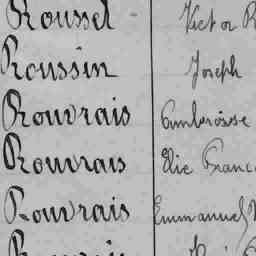 Roussel Victor
Roussin Joseph
Rouvrais Ambroise
Rouvrais Elie Franc
Rouvrais Emmanuel